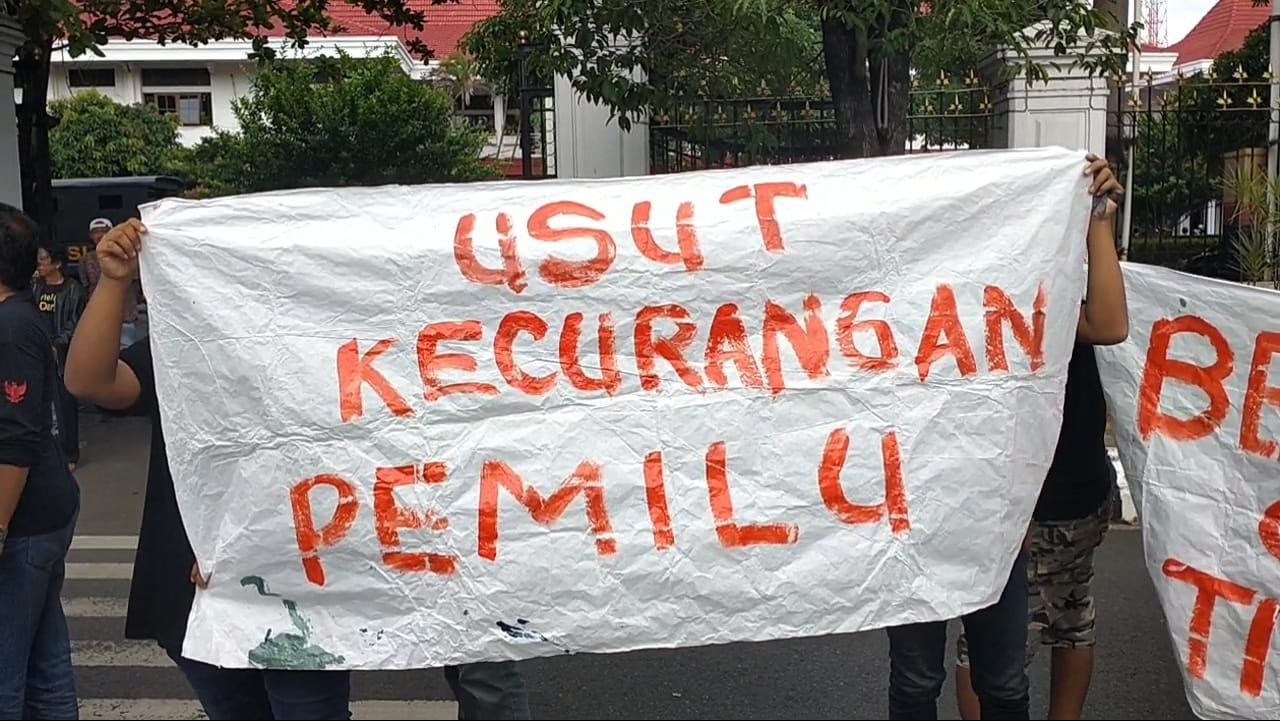 USUT
KECURANGAN
PEMILU